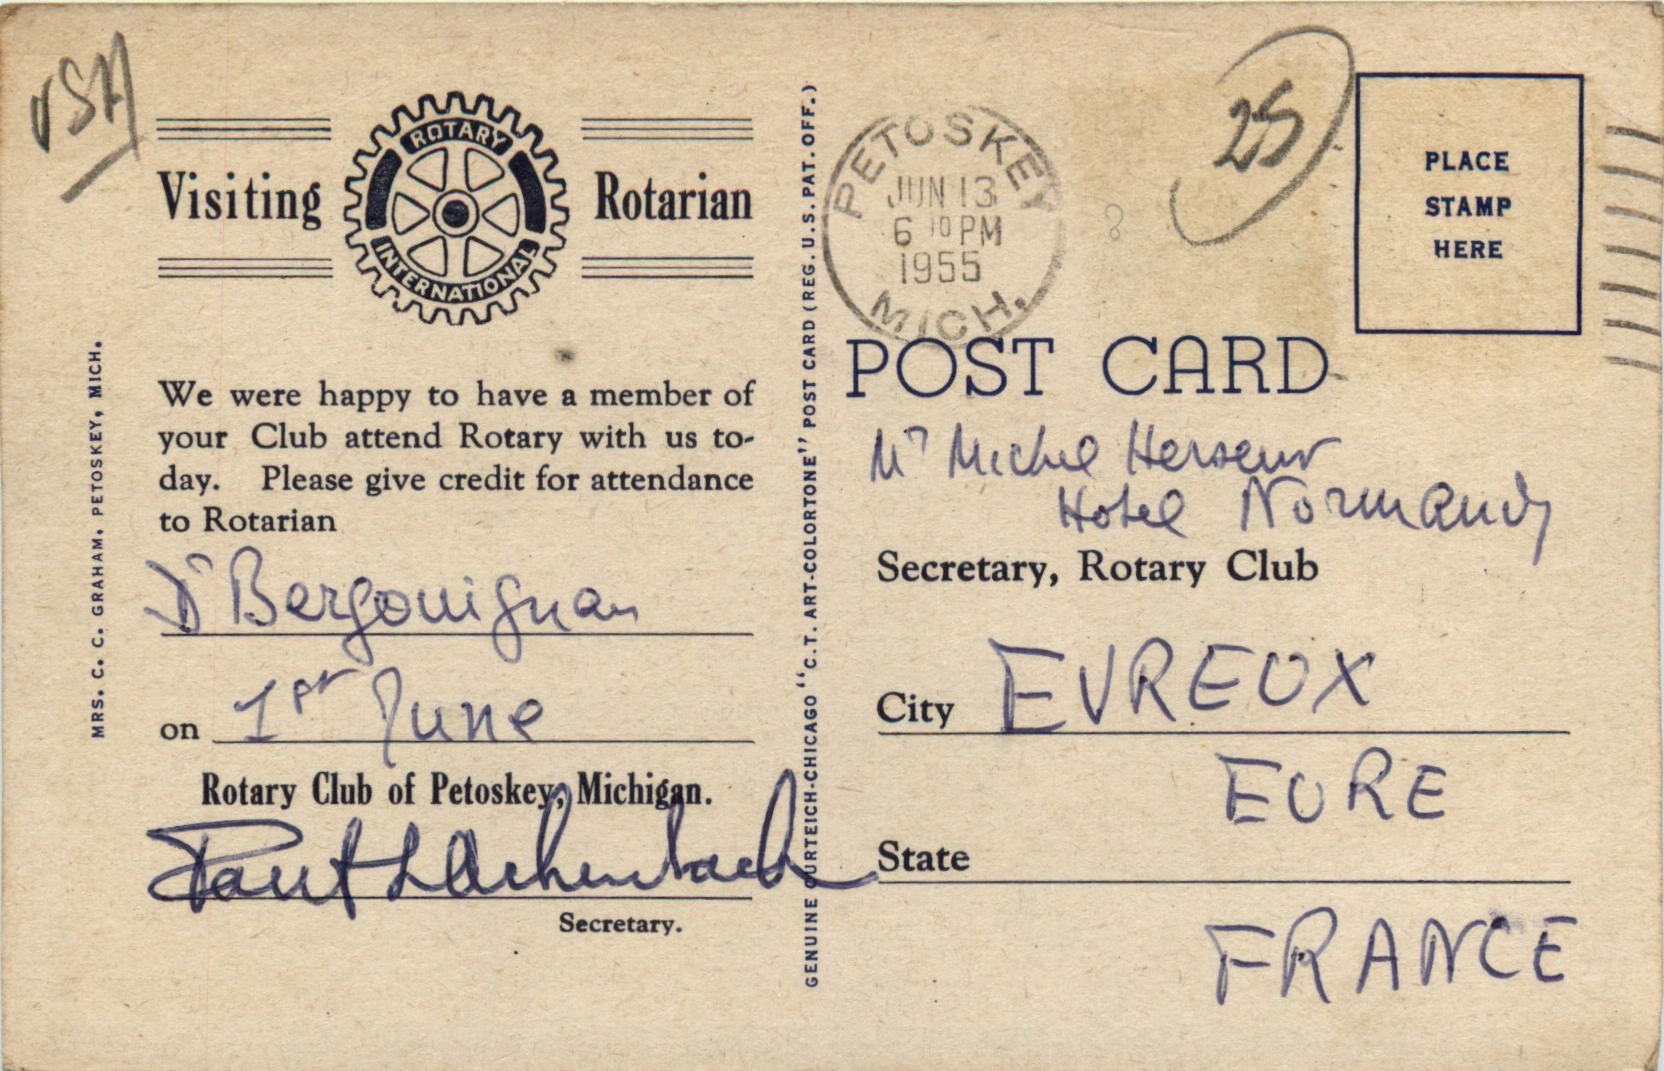 USA
Visiting Rotarian
ROTARY
INTERNATIONAL
We were happy to have a member of
your Club attend Rotary with us to-
day. Please give credit for attendance
to Rotarian
Dr Bergouignan
on 1st June
Rotary Club of Petoskey, Michigan.
Secretary.
MRS. C. C. GRAHAM. PETOSKEY, MICH.
GENUINE CURTEICH-CHICAGO "C. T. ART-COLORTONE" POST CARD (REG. U.S. PAT. OFF.)
PETOSKEY
JUN 13
6 PM
1955
MICH.
25
PLACE
STAMP
HERE
POST CARD
Mr Michel
Hotel Normandy
Secretary, Rotary Club
City EVREUX
EURE
State
FRANCE